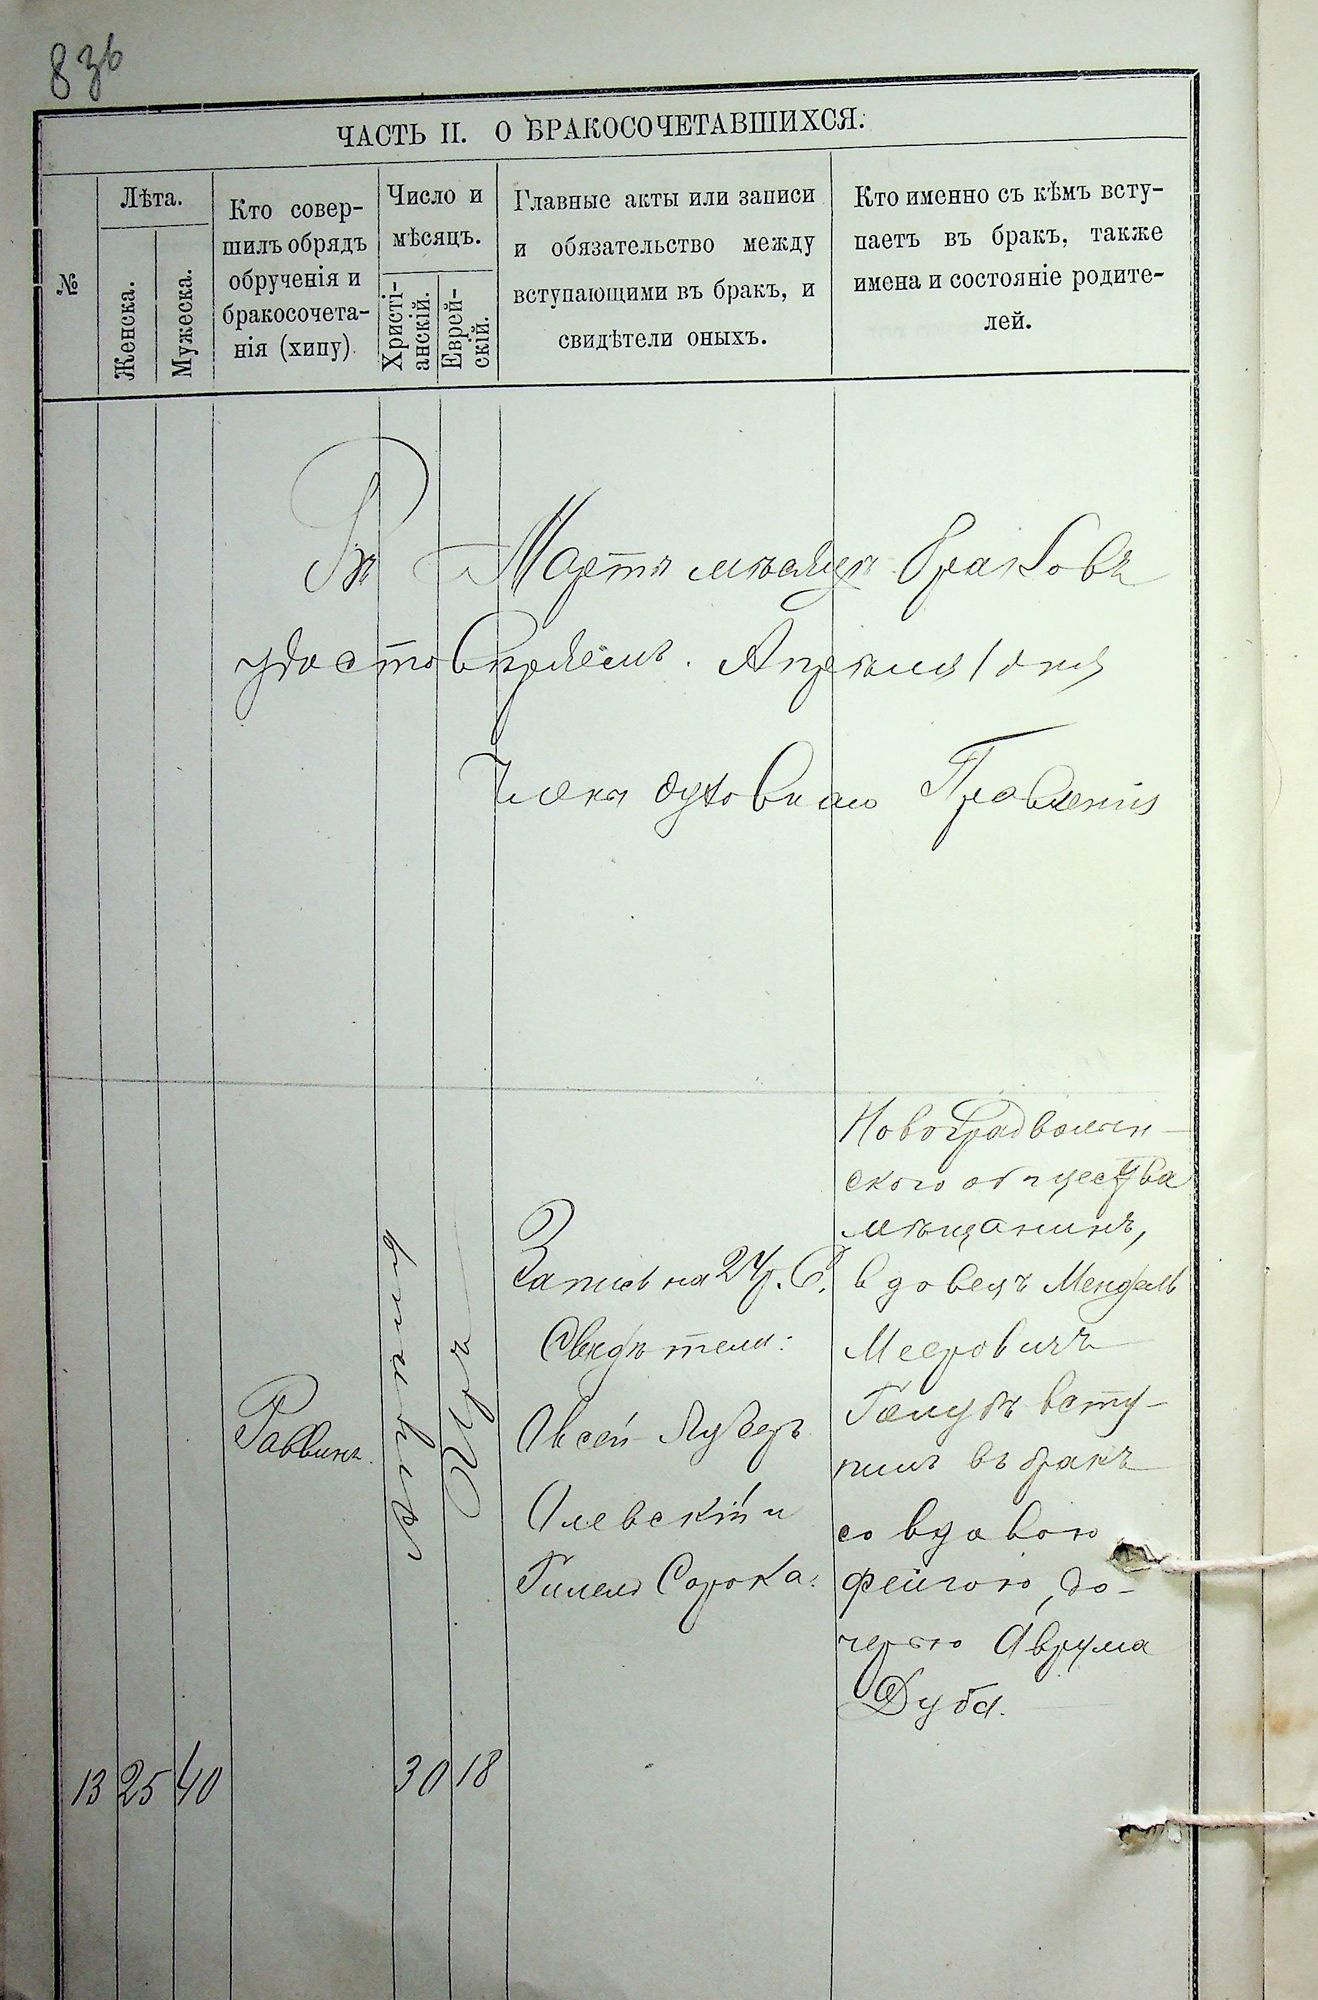 83б
ЧАСТЬ II. О БРАКОСОЧЕТАВШИХСЯ.
№
Лѣта.
Женска.
Мужеска.
Кто совер-
шилъ обрядъ
обрученія и
бракосочета-
нія (хипу)
Число и
мѣсяцъ.
Христі-
анскій.
Еврей-
скій.
Главные акты или записи
и обязательство между
вступающими въ бракъ, и
свидѣтели оныхъ.
Кто именно съ кѣмъ всту-
паетъ въ бракъ, также
имена и состояніе родите-
лей.
Въ Мартѣ мѣсяцѣ браковъ
удостовѣряемъ. Апрѣля 1 дня
Членъ духовнаго Правленія
13
25
40
Раввинъ.
30
18
Запись на 24 р. С.
Свидѣтели:
Овсей Лузеръ
Олевскій и
Гилель Сорока.
Новоградволын-
скаго общества
мѣщанинъ,
вдовецъ Мендель
Мееровичъ
Голубъ всту-
пилъ въ бракъ
со вдовою
Фейгою, до-
черью Аврума
Дуба.